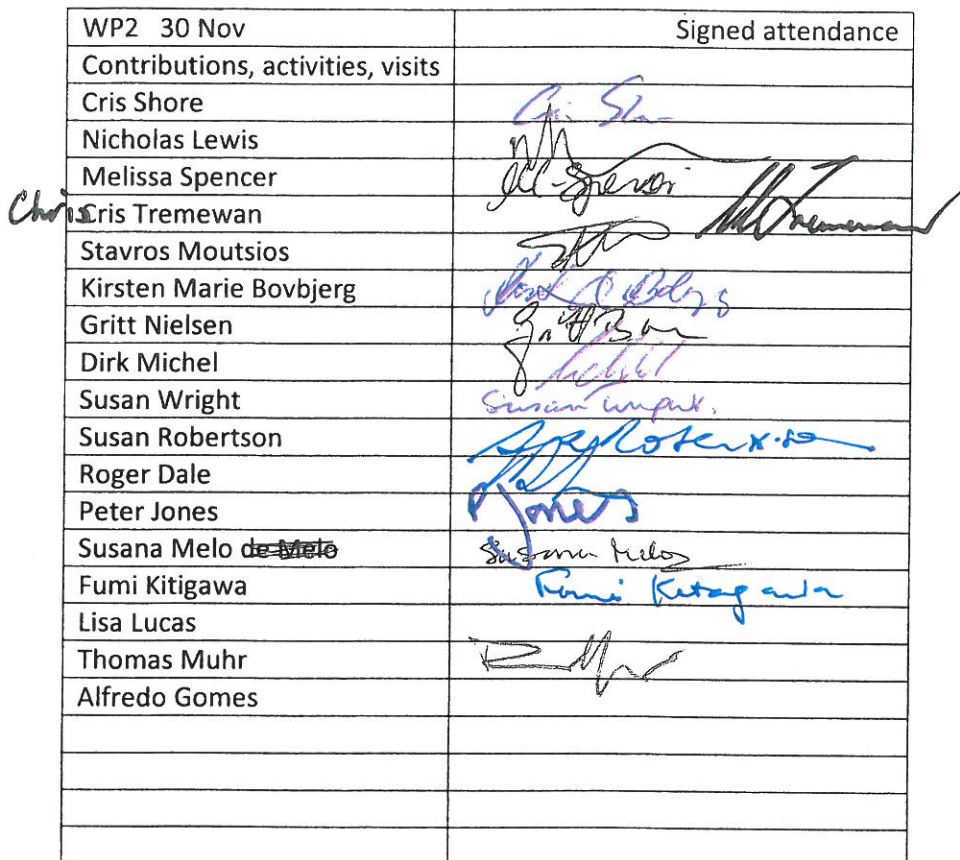 WP2 30 Nov Signed attendance
Contributions, activities, visits
Cris Shore Cris Shore
Nicholas Lewis
Melissa Spencer M-Spencer
Chris Cris Tremewan Tremewan
Stavros Moutsios
Kirsten Marie Bovbjerg
Gritt Nielsen
Dirk Michel
Susan Wright Susan Wright.
Susan Robertson Robertson
Roger Dale
Peter Jones PJones
Susana Melo de Melo Susana Melo
Fumi Kitigawa Fumi Kitagawa
Lisa Lucas
Thomas Muhr
Alfredo Gomes